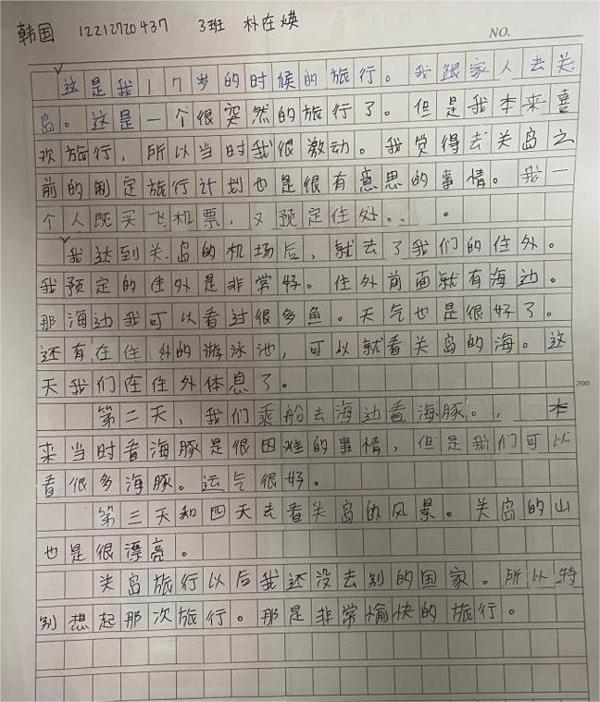 韩国 12212720437 3班 朴在煐
NO.
这是我17岁的时候的旅行。我跟家人去关
岛。这是一个很突然的旅行了。但是我本来喜
欢旅行，所以当时我很激动。我觉得去关岛之
前的制定旅行计划也是很有意思的事情。我一
个人既买飞机票，又预定住处。.
我达到关岛的机场后，就去了我们的住外。
我预定的住外是非常好。住外前面就有海边。
那海边我可以看过很多鱼。天气也是很好了。
还有在住外的游泳池，可以就看关岛的海。这
天我们在住外体息了。
200
第二天，我们乘船去海边看海豚。，本
来当时看海豚是很困难的事情，但是我们可以
看很多海豚。运气很好。
第三天和四天去看关岛的风景。关岛的山
也是很漂亮。
关岛旅行以后我还没去别的国家。所以特
别想起那次旅行。那是非常愉快的旅行。